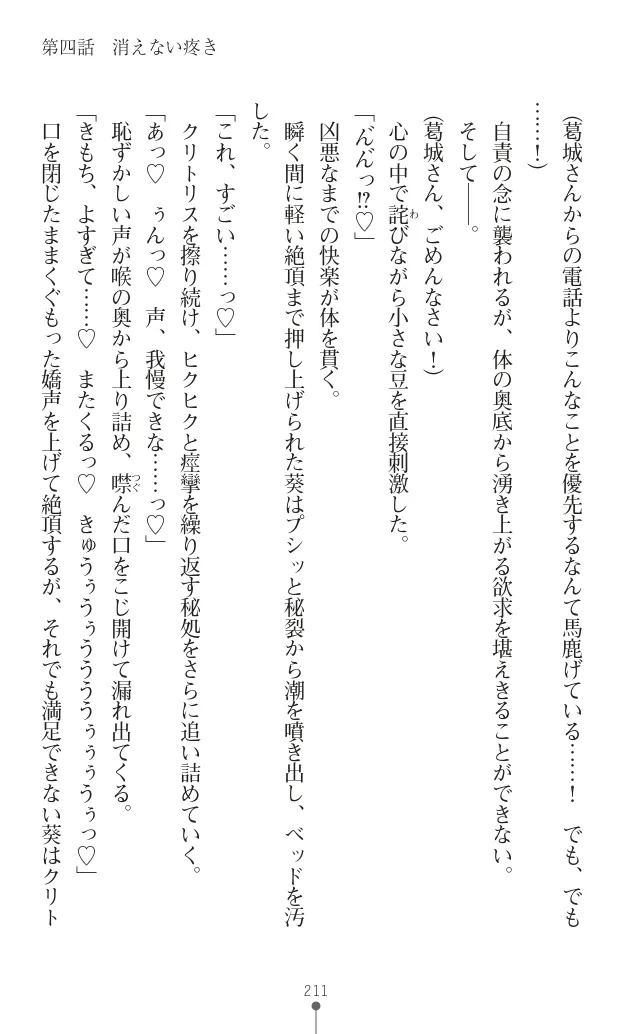 第四話　消えない疼き
（葛城さんからの電話よりこんなことを優先するなんて馬鹿げている……！　でも、でも
……！）
自責の念に襲われるが、体の奥底から湧き上がる欲求を堪えきることができない。
そして――。
（葛城さん、ごめんなさい！）
心の中で詫びながら小さな豆を直接刺激した。
「んんっ!?♡」
凶悪なまでの快楽が体を貫く。
瞬く間に軽い絶頂まで押し上げられた葵はプシッと秘裂から潮を噴き出し、ベッドを汚
した。
「これ、すごい……っ♡」
クリトリスを擦り続け、ヒクヒクと痙攣を繰り返す秘処をさらに追い詰めていく。
「あっ♡　ぅんっ♡　声、我慢できな……っ♡」
恥ずかしい声が喉の奥から上り詰め、噤んだ口をこじ開けて漏れ出てくる。
「きもち、よすぎて……♡　またくるっ♡　きゅうぅうぅうううぅぅぅうぅっ♡」
口を閉じたままくぐもった嬌声を上げて絶頂するが、それでも満足できない葵はクリト
211